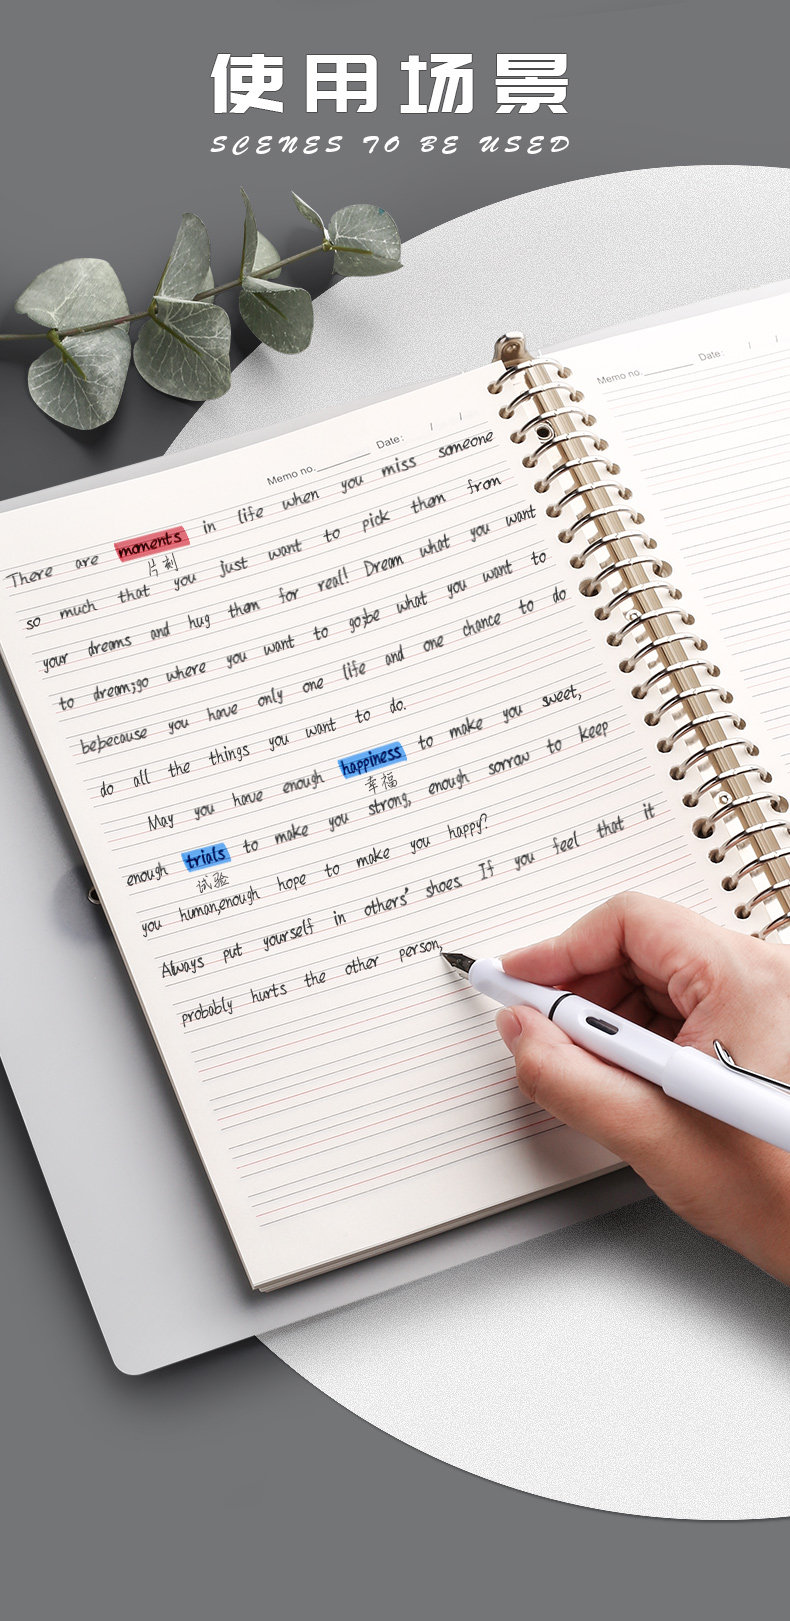 使用场景
SCENES TO BE USED
Memo no. Date: / /
Memo no. Date: / /
There are moments in life when you miss someone
片刻
so much that you just want to pick them from
your dreams and hug them for real! Dream what you want
to dream;go where you want to go;be what you want to
be,because you have only one life and one chance to do
do all the things you want to do.
May you have enough happiness to make you sweet,
幸福
enough trials to make you strong, enough sorrow to keep
试验
you human,enough hope to make you happy?
Always put yourself in others' shoes. If you feel that it
probably hurts the other person,